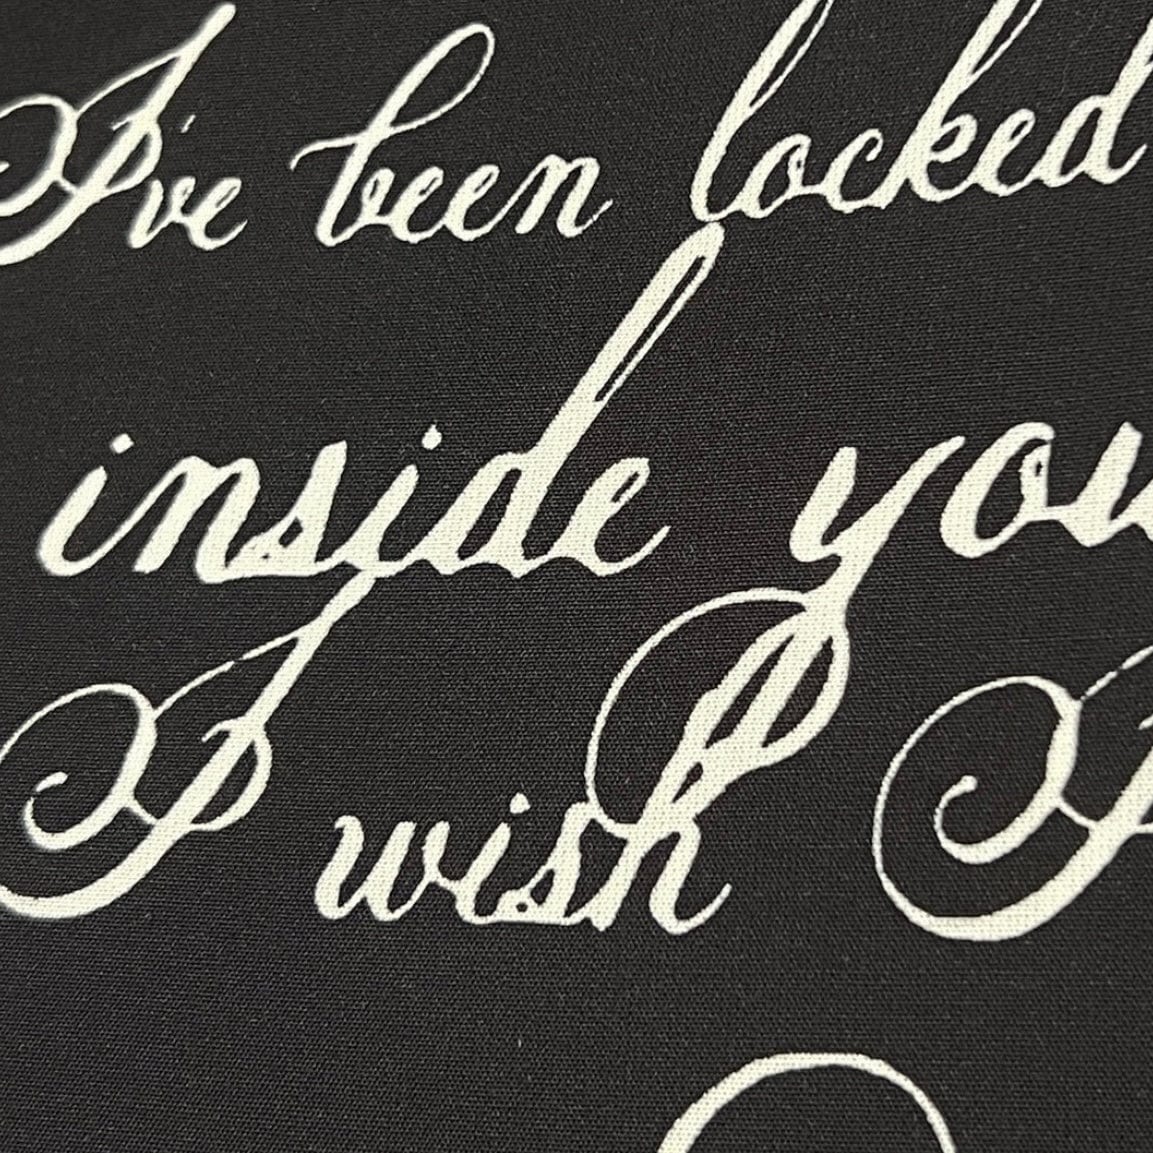 I've been locked
inside you
I wish I